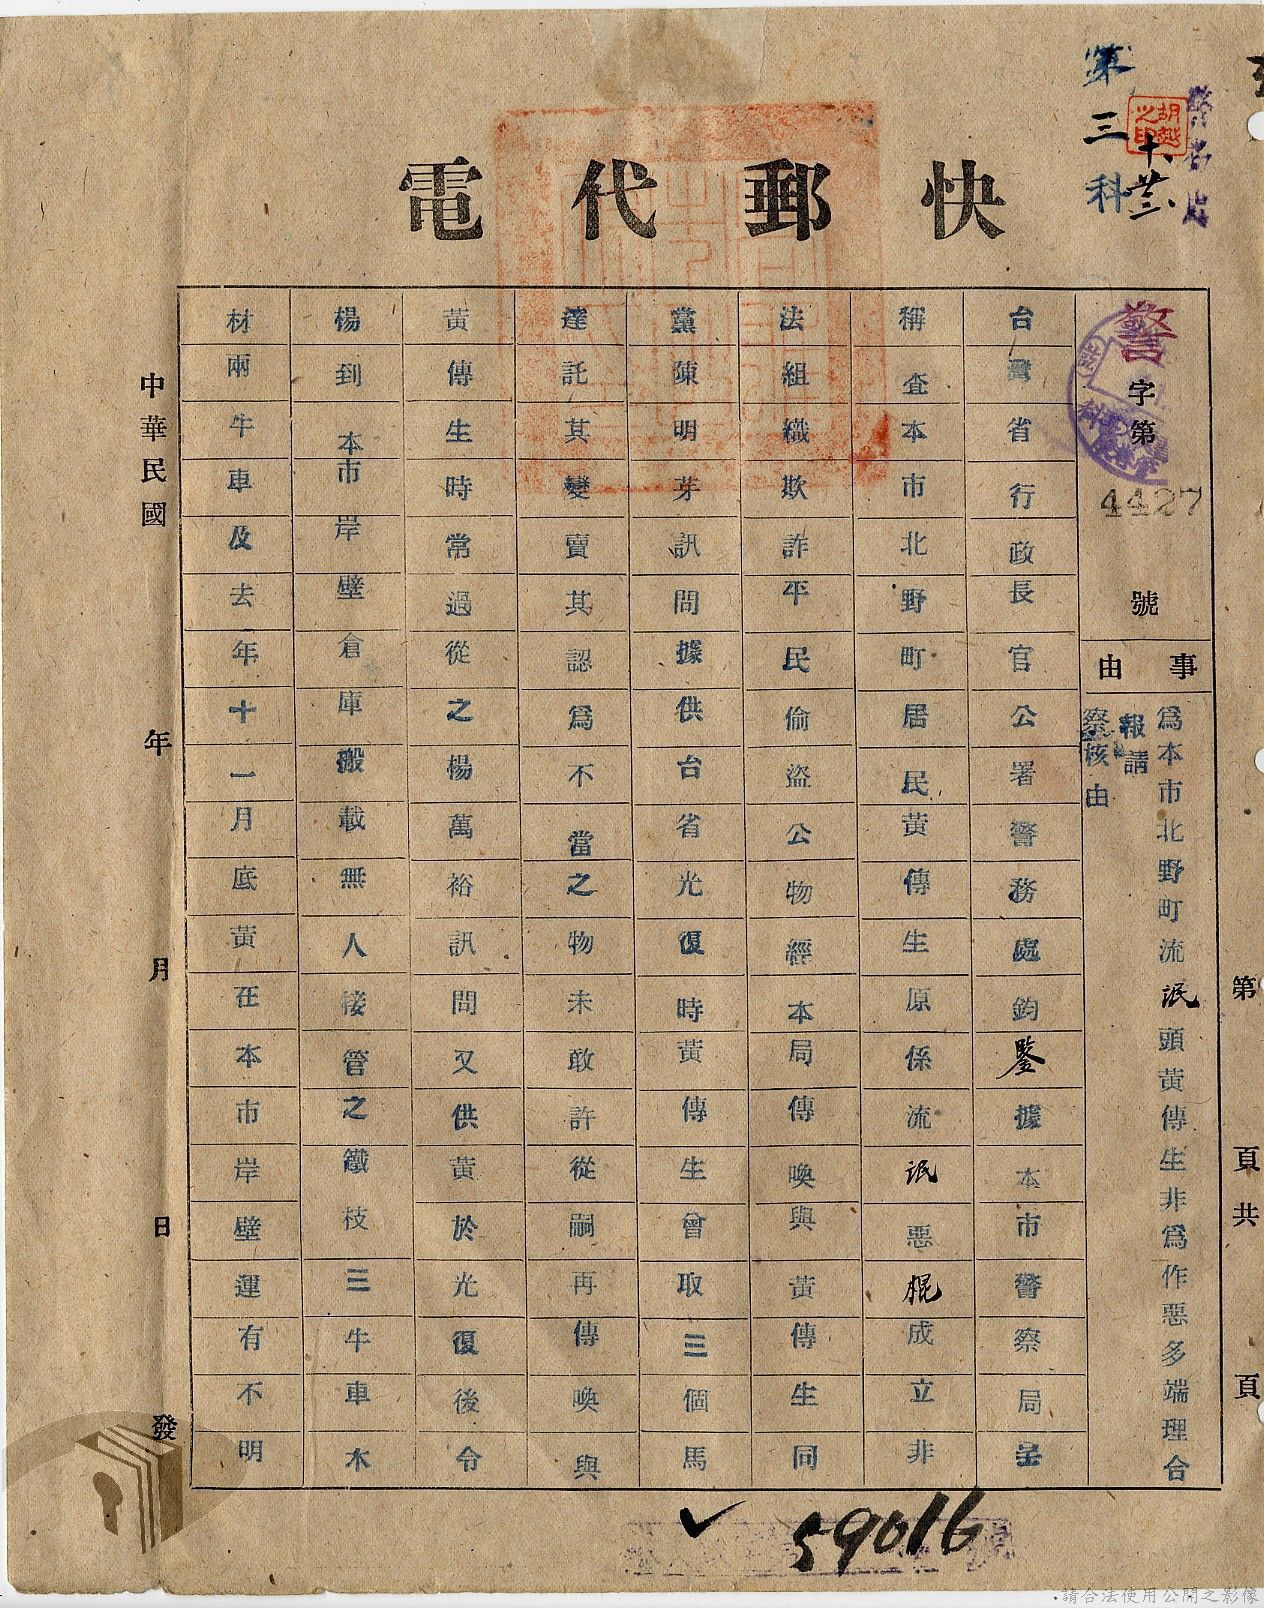 快郵代電
第三科
胡
之印
十、廿三、
警字第4427號
事由
為本市北野町流氓頭黃傳生非為作惡多端理合
報請
察核由
台灣省行政長官公署警務處鈞鑒據本市警察局呈
稱查本市北野町居民黃傳生原係流氓惡棍成立非
法組織欺詐平民偷盜公物經本局傳喚與黃傳生同
黨陳明芽訊問據供台省光復時黃傳生曾取三個馬
達託其變賣其認為不當之物未敢許從嗣再傳喚與
黃傳生時常過從之楊萬裕訊問又供黃於光復後令
楊到本市岸壁倉庫搬載無人接管之鐵枝三牛車木
材兩牛車及去年十一月底黃在本市岸壁運有不明
中華民國 年 月 日 發
第 頁共 頁
59016
請合法使用公開之影像